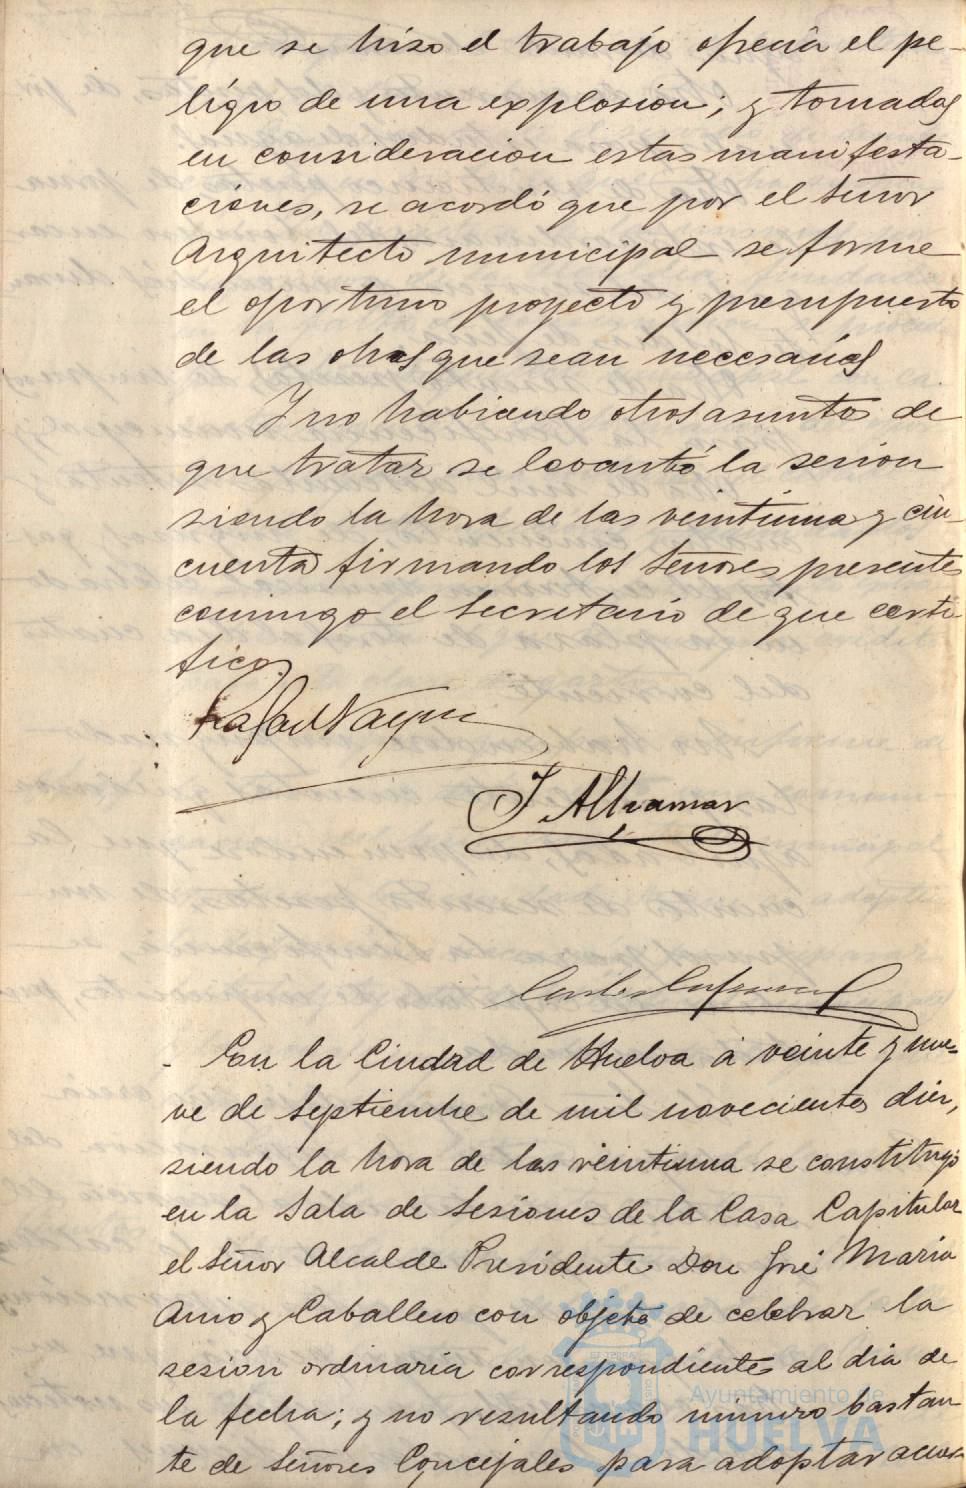 que se hiso el trabajo ofrecia el pe-
ligro de una explosion; y tomadas
en consideracion estas manifesta-
ciones, se acordó que por el Señor
Arquitecto municipal se forme
el oportuno proyecto y presupuesto
de las obras que sean necesarias
Y no habiendo otros asuntos de
que tratar se levantó la sesion
siendo la hora de las veintiuna y cin-
cuenta firmando los Señores presentes
conmigo el Secretario de que certi-
fico.
Rafael
J. Altramar
- En la Ciudad de Huelva á veinte y nue-
ve de Septiembre de mil novecientos diez,
siendo la hora de las veintiuna se constituyó
en la Sala de Sesiones de la Casa Capitular
el Señor Alcalde Presidente Don José Maria
y Caballero con objeto de celebrar la
sesion ordinaria correspondiente al dia de
la fecha; y no resultando número bastan-
te de Señores Concejales para adoptar acuer-
Ayuntamiento de
HUELVA